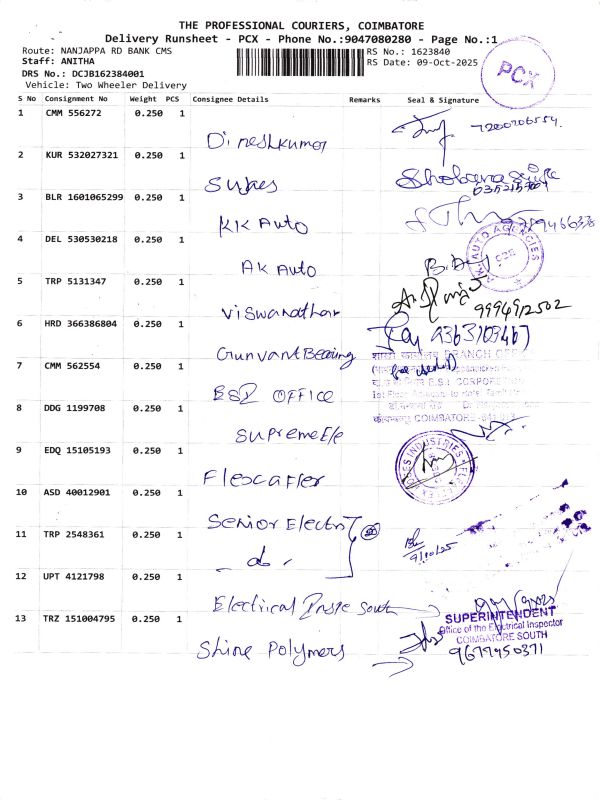 THE PROFESSIONAL COURIERS, COIMBATORE
Delivery Runsheet - PCX - Phone No.:9047080280 - Page No.:1
Route: NANJAPPA RD BANK CMS
RS No.: 1623840
Staff: ANITHA
RS Date: 09-Oct-2025
DRS No.: DCJB162384001
Vehicle: Two Wheeler Delivery
PCX
S No Consignment No Weight PCS Consignee Details Remarks Seal & Signature
1 CMM 556272 0.250 1
Dineshkumar 7200706554.
2 KUR 532027321 0.250 1
Sures
3 BLR 1601065299 0.250 1
KK Auto
4 DEL 530530218 0.250 1
AK Auto
5 TRP 5131347 0.250 1
Viswanathan 9994912502
6 HRD 366386804 0.250 1
Gunvant Bearing 9363103467
7 CMM 562554 0.250 1
BRANCH
E.S.I. CORPORATION
ESI OFFICE
COIMBATORE
8 DDG 1199708 0.250 1
Supreme Ele
9 EDQ 15105193 0.250 1
INDUSTRIES
Flexcaffer
10 ASD 40012901 0.250 1
Senior Electro
11 TRP 2548361 0.250 1
- do -
9/10/25
12 UPT 4121798 0.250 1
Electrical Inspe South
SUPERINTENDENT
Office of the Electrical Inspector
COIMBATORE SOUTH
13 TRZ 151004795 0.250 1
Shine Polymers 9677950371